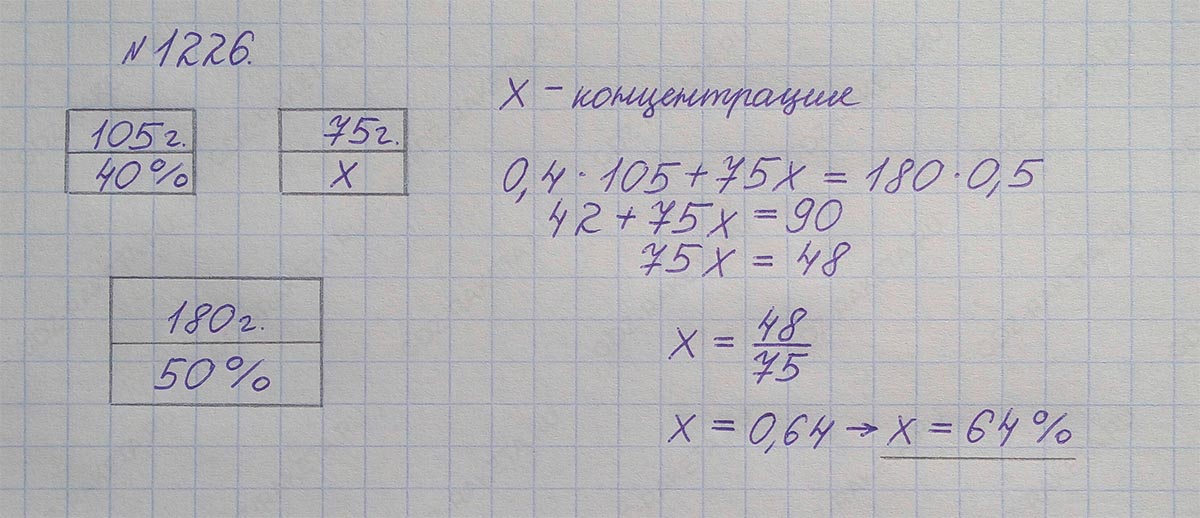 N1226.
105г.
40%
75г.
X
180г.
50%
X - концентрация
0,4·105+75x=180·0,5
42+75x=90
75x=48
x=48/75
x=0,64→x=64%